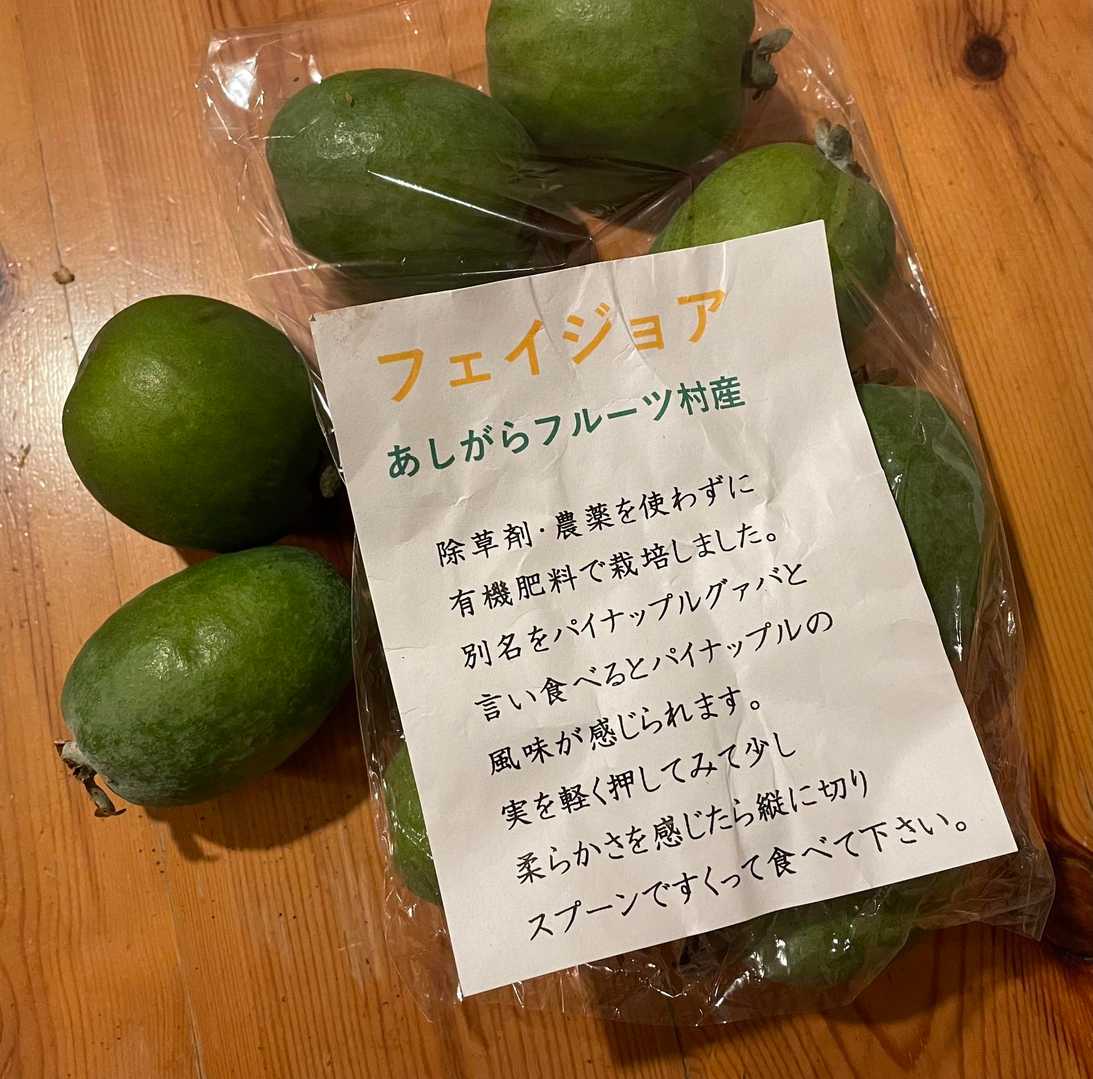 フェイジョア
あしがらフルーツ村産
除草剤・農薬を使わずに
有機肥料で栽培しました。
別名をパイナップルグァバと
言い食べるとパイナップルの
風味が感じられます。
実を軽く押してみて少し
柔らかさを感じたら縦に切り
スプーンですくって食べて下さい。